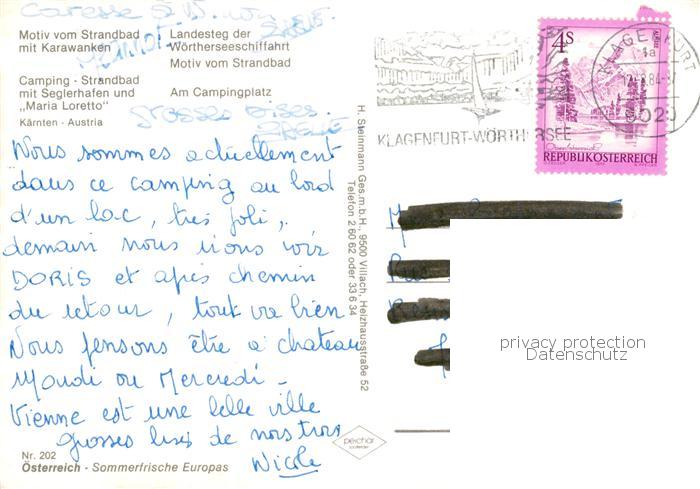 Motiv vom Strandbad
mit Karawanken
Landesteg der
Wörtherseeschiffahrt
Motiv vom Strandbad
Camping - Strandbad
mit Seglerhafen und
„Maria Loretto"
Am Campingplatz
Kärnten - Austria
grosses bises
Nous sommes actuellement
dans ce camping au bord
d'un lac, très joli,
demain nous irons voir
DORIS et après chemin
du retour, tout va bien
Nous pensons être à chateau
Mardi ou Mercredi -
Vienne est une belle ville
grosses bises de nous trois
Nicole
Nr. 202
Österreich - Sommerfrische Europas
H. Steinmann Ges.m.b.H., 9500 Villach, Heizhausstraße 52
Telefon 2 60 62 oder 33 6 34
KLAGENFURT-WÖRTHERSEE
4S
REPUBLIK ÖSTERREICH
KLAGENFURT
9020
privacy protection
Datenschutz